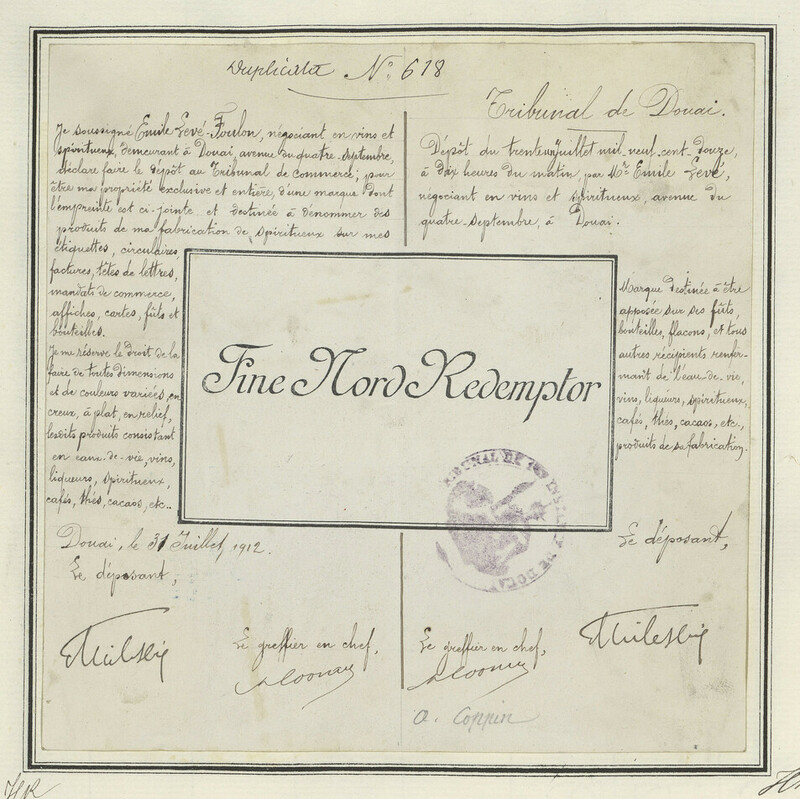 Duplicata N° 618
Je soussigné Emile Levé-Toulon, négociant en vins et
spiritueux, demeurant à Douai, avenue du quatre-septembre,
déclare faire le dépôt au Tribunal de Commerce; pour
être ma propriété exclusive et entière, d'une marque dont
l'empreinte est ci-jointe et destinée à dénommer des
produits de ma fabrication de spiritueux sur mes
étiquettes, circulaires,
factures, têtes de lettres,
mandats de commerce,
affiches, cartes, fûts et
bouteilles.
Je me réserve le droit de la
faire de toutes dimensions
et de couleurs variées, en
creux, à plat, en relief,
lesdits produits consistant
en eaux-de-vie, vins,
liqueurs, spiritueux,
cafés, thés, cacaos, etc..
Douai, le 31 Juillet, 1912.
Le déposant,
Le greffier en chef,
Fine Nord Redemptor
Tribunal de Douai.
Dépôt du trente un juillet mil-neuf-cent-douze,
à dix heures du matin, par Mr. Emile Levé,
négociant en vins et spiritueux, avenue du
quatre-septembre, à Douai.
Marque destinée à être
apposée sur ses fûts,
bouteilles, flacons, et tous
autres récipients renfer-
mant de l'eau-de-vie,
vins, liqueurs, spiritueux,
cafés, thés, cacaos, etc.,
produits de sa fabrication.
TRIBUNAL DE 1RE INSTANCE DE DOUAI
Le déposant,
Le greffier en chef,
a. Coppin